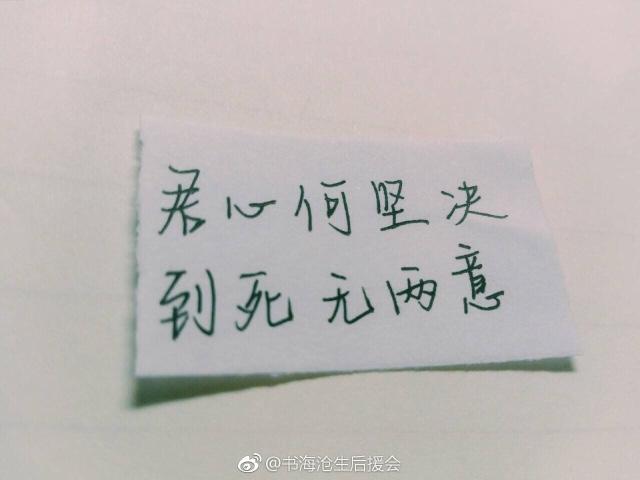 君心何坚决
到死无两意
@书海沧生后援会